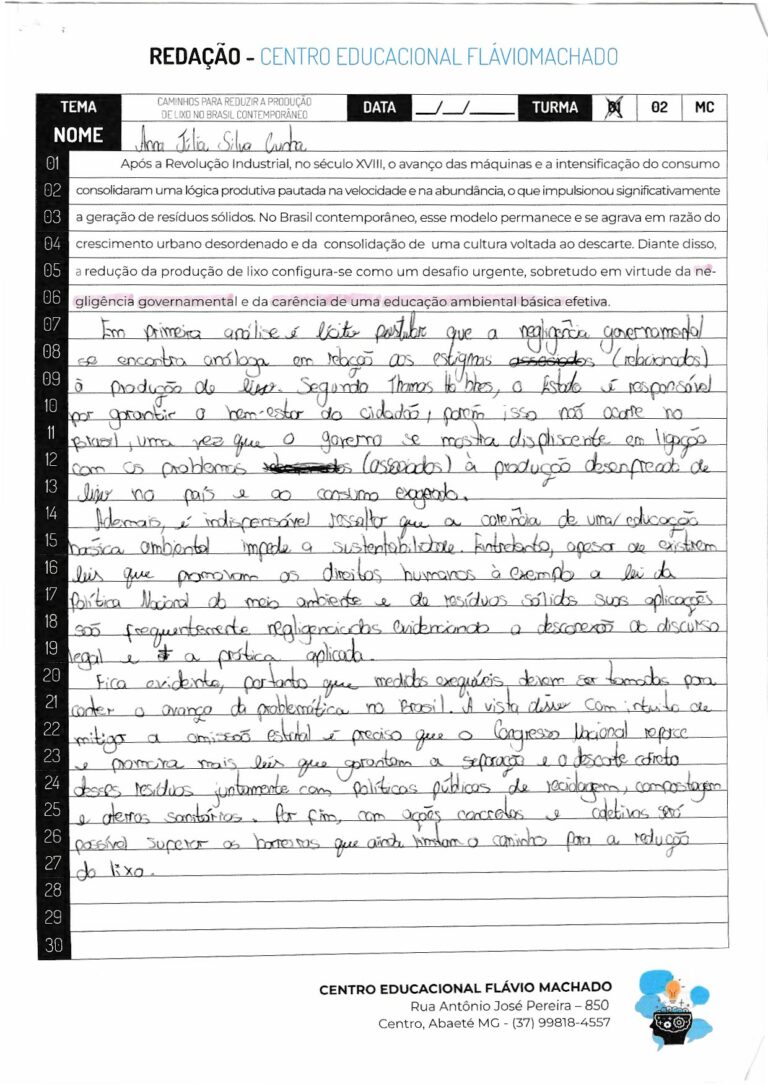 REDAÇÃO - CENTRO EDUCACIONAL FLÁVIOMACHADO
TEMA CAMINHOS PARA REDUZIR A PRODUÇÃO DE LIXO NO BRASIL CONTEMPORÂNEO DATA __/__/____ TURMA 01 02 MC
NOME Anna Júlia Silva Cunha
01 Após a Revolução Industrial, no século XVIII, o avanço das máquinas e a intensificação do consumo
02 consolidaram uma lógica produtiva pautada na velocidade e na abundância, o que impulsionou significativamente
03 a geração de resíduos sólidos. No Brasil contemporâneo, esse modelo permanece e se agrava em razão do
04 crescimento urbano desordenado e da consolidação de uma cultura voltada ao descarte. Diante disso,
05 a redução da produção de lixo configura-se como um desafio urgente, sobretudo em virtude da ne-
06 gligência governamental e da carência de uma educação ambiental básica efetiva.
07 Em primeira análise é lícito postular que a negligência governamental
08 se encontra análoga em relação aos estigmas (relacionados)
09 à produção de lixo. Segundo Thomas Hobbes, o Estado é responsável
10 por garantir o bem-estar do cidadão, porém isso não ocorre no
11 Brasil, uma vez que o governo se mostra displiscente em ligação
12 com os problemas (associados) à produção desenfreada de
13 lixo no país e ao consumo exagerado.
14 Ademais, é indispensável ressaltar que a carência de uma educação
15 básica ambiental impede a sustentabilidade. Entretanto, apesar de existirem
16 leis que promovam os direitos humanos à exemplo a lei da
17 Política Nacional do meio ambiente e de resíduos sólidos suas aplicações
18 são frequentemente negligenciadas evidenciando a desconexão do discurso
19 legal e a prática aplicada.
20 Fica evidente, portanto que medidas exequíveis devem ser tomadas para
21 conter o avanço da problemática no Brasil. À vista disso com intuito de
22 mitigar a omissão estatal é preciso que o Congresso Nacional reforce
23 e promova mais leis que garantam a separação e o descarte correto
24 desses resíduos juntamente com políticas públicas de reciclagem, compostagem
25 e aterros sanitários. Por fim, com ações concretas e coletivas será
26 possível superar as barreiras que ainda limitam o caminho para a redução
27 do lixo.
28
29
30
CENTRO EDUCACIONAL FLÁVIO MACHADO
Rua Antônio José Pereira – 850
Centro, Abaeté MG - (37) 99818-4557